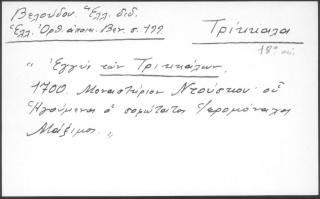 Βελούδου. Ἑλλ. διδ.
Ἑλλ. Ὀρθ. ἀποικ. Βεν. σ. 199.
Τρίκκαλα
18ος αἰ.
„ Ἐγγύς τῶν Τρικκάλων,
1700. Μοναστήριον Ντούσκου· οὗ
Ἡγούμενος ὁ σοφώτατος Ἱερομόναχος
Μάξιμος. „